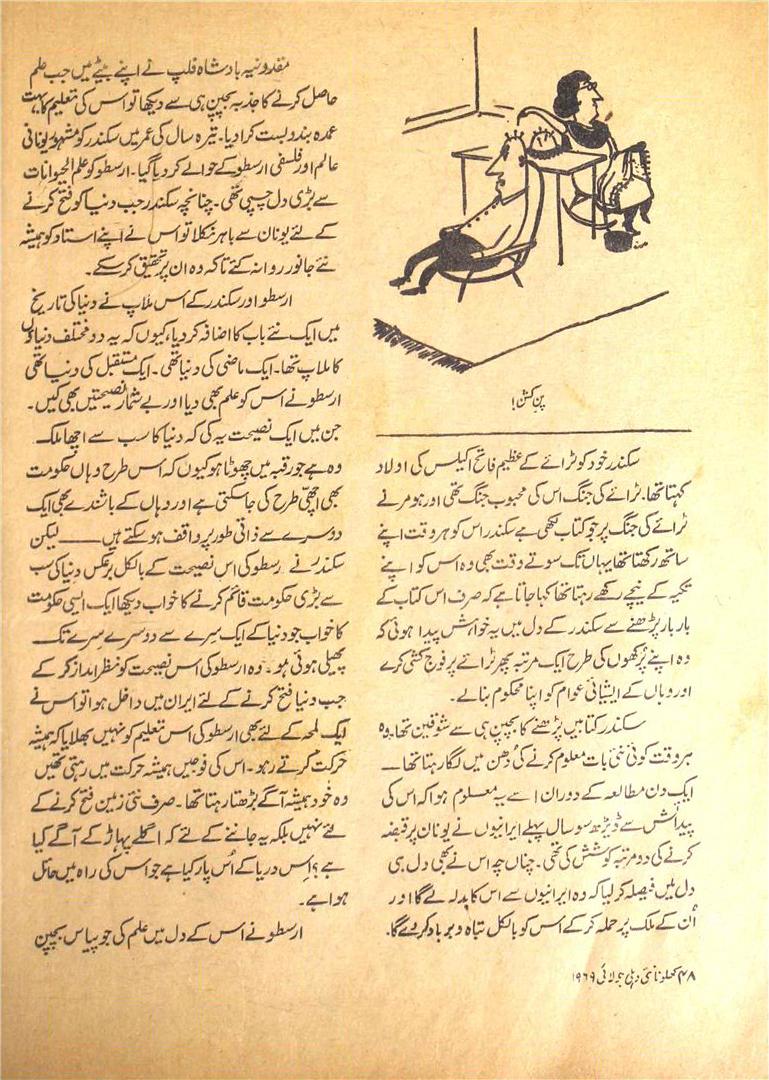 پن کشن!
سکندر خود کو ٹرائے کے عظیم فاتح اکیلس کی اولاد
کہتا تھا۔ ٹرائے کی جنگ اس کی محبوب جنگ تھی اور ہومر نے
ٹرائے کی جنگ پر جو کتاب لکھی ہے سکندر اس کو ہر وقت اپنے
ساتھ رکھتا تھا یہاں تک سوتے وقت بھی وہ اس کو اپنے
تکیہ کے نیچے رکھے رہتا تھا کہا جاتا ہے کہ صرف اس کتاب کے
بار بار پڑھنے سے سکندر کے دل میں یہ خواہش پیدا ہوئی کہ
وہ اپنے پُرکھوں کی طرح ایک مرتبہ پھر ٹرائے پر فوج کشی کرے
اور وہاں کے ایشیائی عوام کو اپنا محکوم بنالے۔
سکندر کتابیں پڑھنے کا بچپن ہی سے شوقین تھا۔ وہ
ہر وقت کوئی نئی بات معلوم کرنے کی دُھن میں لگا رہتا تھا۔
ایک دن مطالعہ کے دوران اسے یہ معلوم ہوا کہ اس کی
پیدائش سے ڈیڑھ سو سال پہلے ایرانیوں نے یونان پر قبضہ
کرنے کی دو مرتبہ کوشش کی تھی۔ چناں چہ اس نے بھی دل ہی
دل میں فیصلہ کر لیا کہ وہ ایرانیوں سے اس کا بدلہ لے گا اور
اُن کے ملک پر حملہ کر کے اس کو بالکل تباہ و برباد کر دے گا۔
مقدونیہ بادشاہ فلپ نے اپنے بیٹے میں جب علم
حاصل کرنے کا جذبہ بچپن ہی سے دیکھا تو اس کی تعلیم کا بہت
عمدہ بندوبست کرادیا۔ تیرہ سال کی عمر میں سکندر کو مشہور یونانی
عالم اور فلسفی ارسطو کے حوالے کر دیا گیا۔ ارسطو کو علم الحیوانات
سے بڑی دل چسپی تھی۔ چنانچہ سکندر جب دنیا کو فتح کرنے
کے لئے یونان سے باہر نکلا تو اس نے اپنے استاد کو ہمیشہ
نئے جانور روانہ کئے تاکہ وہ ان پر تحقیق کر سکے۔
ارسطو اور سکندر کے اس ملاپ نے دنیا کی تاریخ
میں ایک نئے باب کا اضافہ کر دیا، کیوں کہ یہ دو مختلف دنیاؤں
کا ملاپ تھا۔ ایک ماضی کی دنیا تھی۔ ایک مستقبل کی دنیا تھی
ارسطو نے اس کو علم بھی دیا اور بے شمار نصیحتیں بھی کیں۔
جن میں ایک نصیحت یہ کی کہ دنیا کا سب سے اچھا ملک
وہ ہے جو رقبہ میں چھوٹا ہو کیوں کہ اس طرح وہاں حکومت
بھی اچھی طرح کی جاسکتی ہے اور وہاں کے باشندے بھی ایک
دوسرے سے ذاتی طور پر واقف ہو سکتے ہیں —— لیکن
سکندر نے ارسطو کی اس نصیحت کے بالکل برعکس دنیا کی سب
سے بڑی حکومت قائم کرنے کا خواب دیکھا ایک ایسی حکومت
کا خواب جو دنیا کے ایک سرے سے دوسرے سرے تک
پھیلی ہوئی ہو۔ وہ ارسطو کی اس نصیحت کو نظر انداز کر کے
جب دنیا فتح کرنے کے لئے ایران میں داخل ہوا تو اس نے
ایک لمحہ کے لئے بھی ارسطو کی اس تعلیم کو نہیں بھلایا کہ ہمیشہ
حرکت کرتے رہو۔ اس کی فوجیں ہمیشہ حرکت میں رہتی تھیں
وہ خود ہمیشہ آگے بڑھتا رہتا تھا۔ صرف نئی زمین فتح کرنے کے
لئے نہیں بلکہ یہ جاننے کے لئے کہ اگلے پہاڑ کے آگے کیا
ہے؟ اس دریا کے اُس پار کیا ہے جو اس کی راہ میں حائل
ہوا ہے۔
ارسطو نے اس کے دل میں علم کی جو پیاس بچپن
۴۸ کھلونا نئی دہلی جولائی ۱۹۶۹